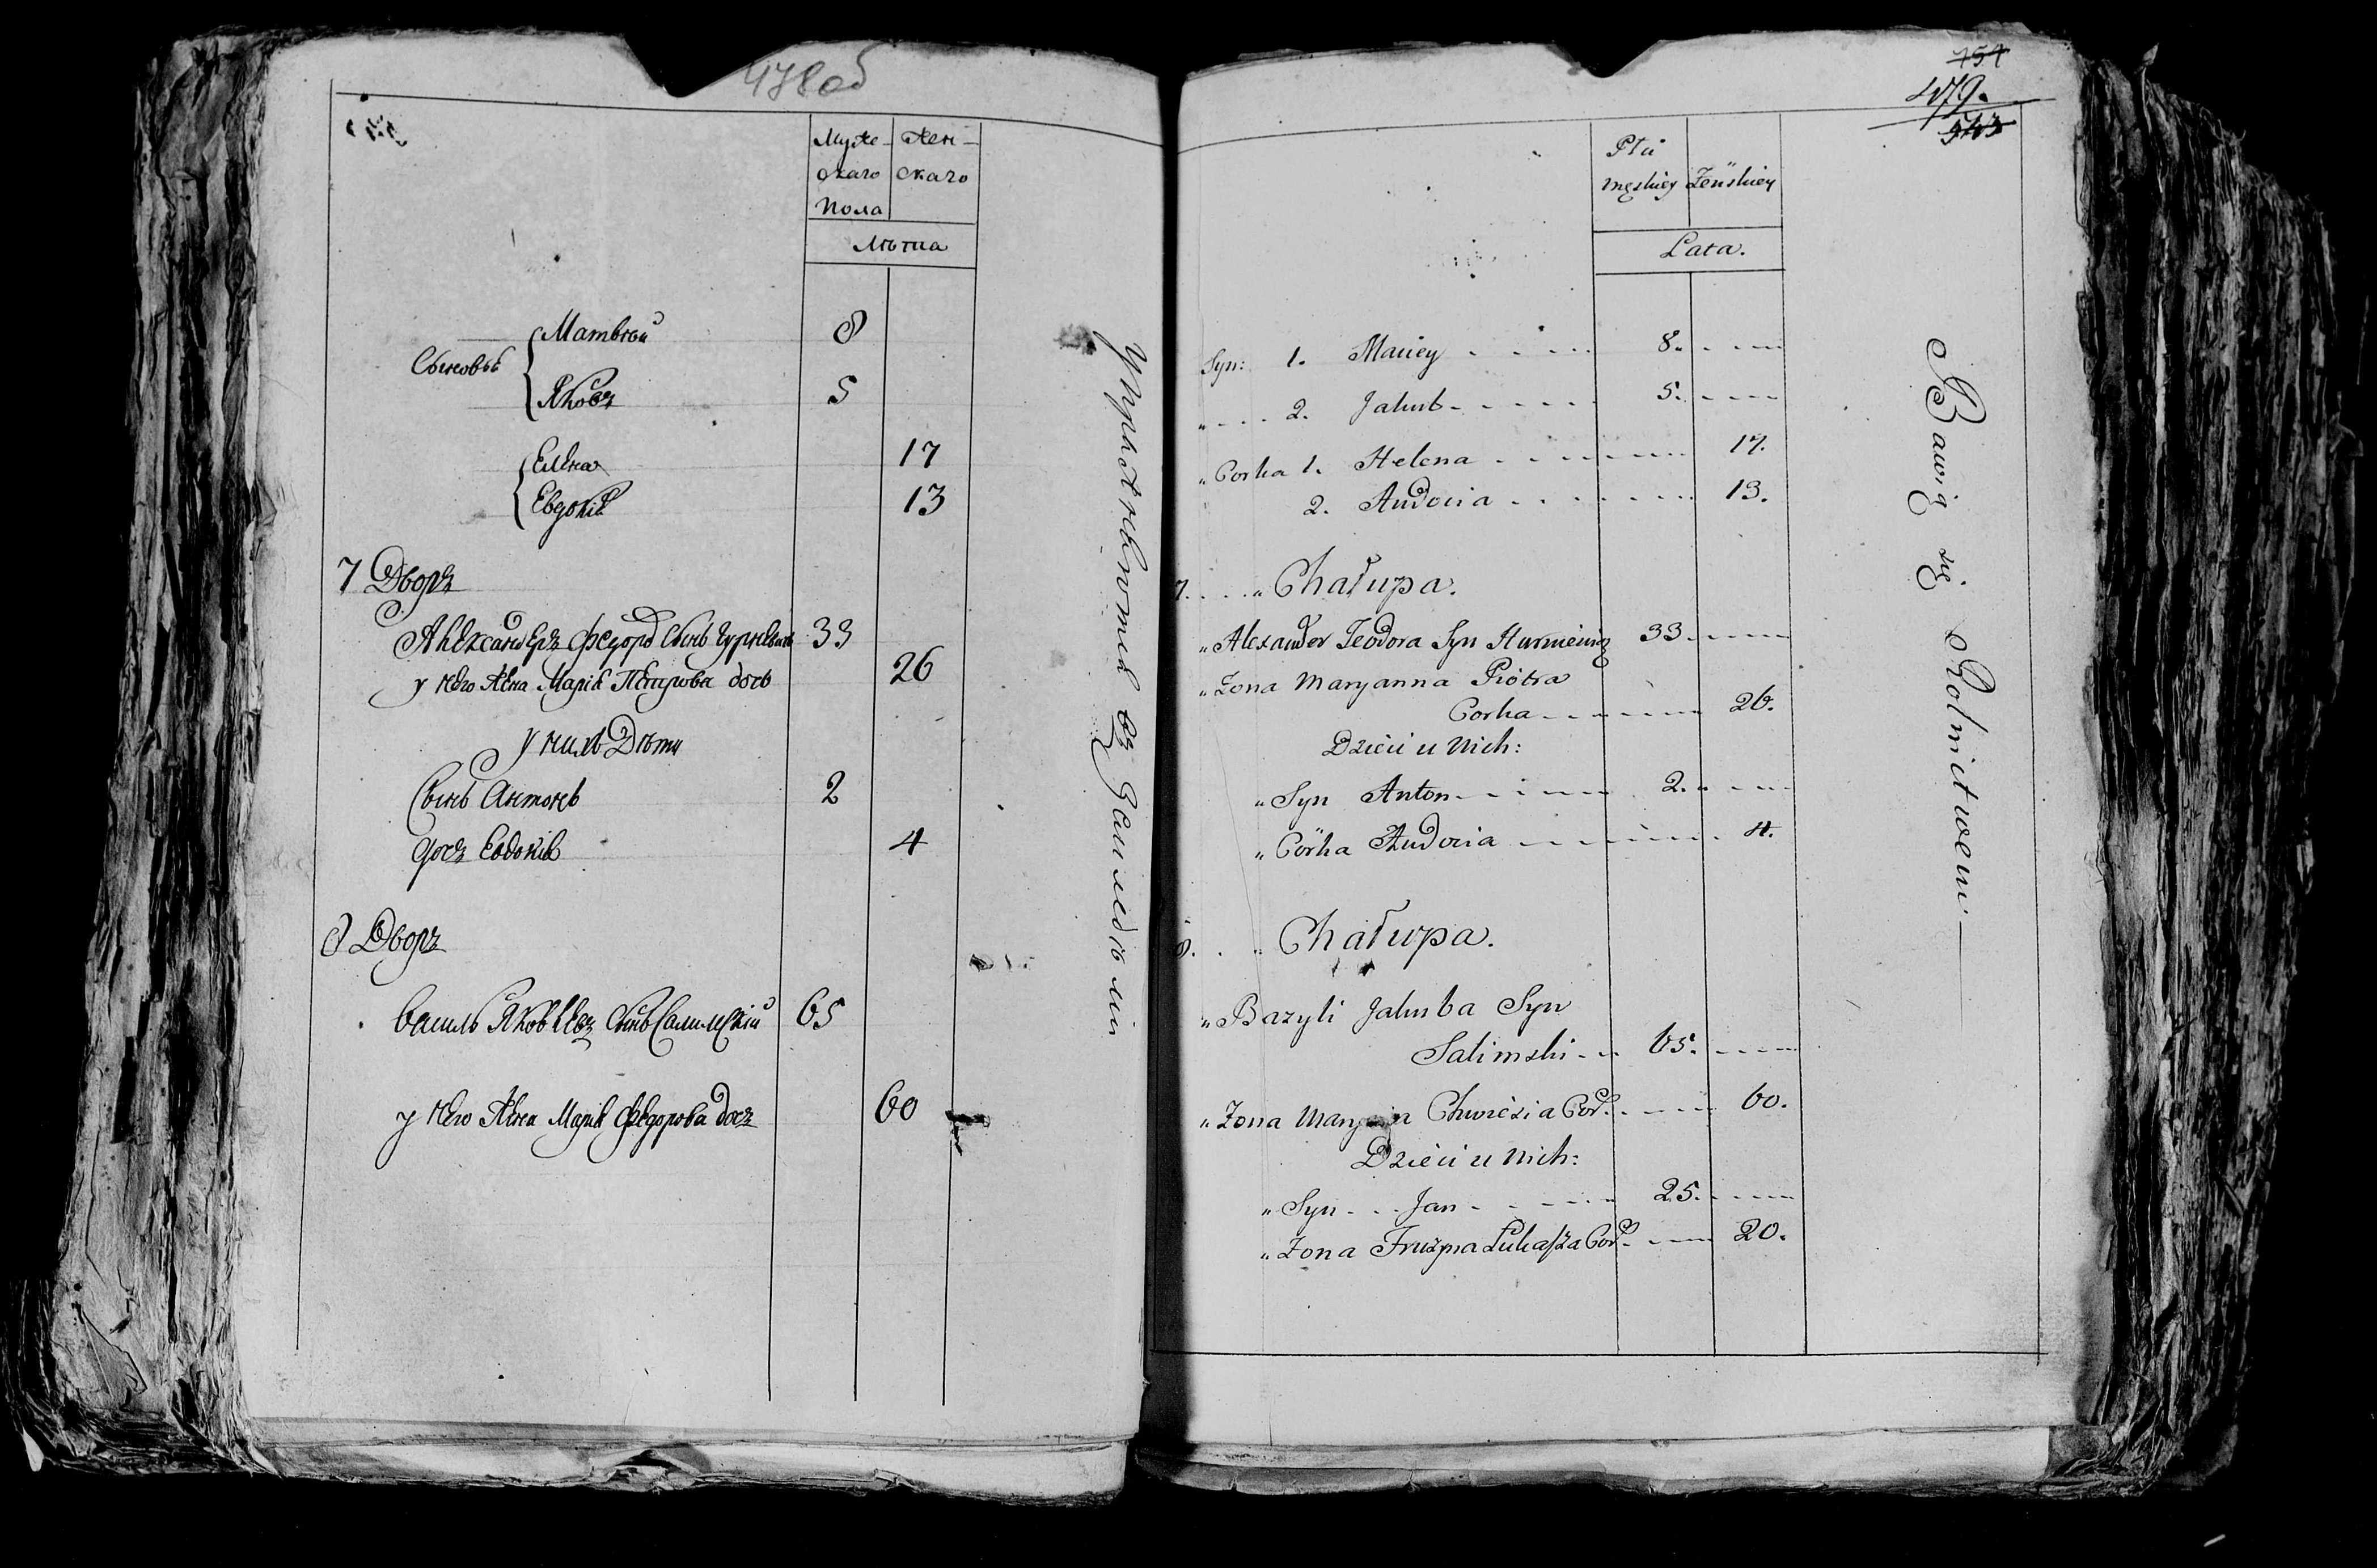 478об
Муже- Жен-
скаго скаго
Пола
Лѣта
Матвѣй 8
Сыновья
Яковъ 5
Елена 17
Евдокія 13
7 Дворъ
Александеръ Федоръ Сынъ 33
у него Жена Марія Петрова дочь 26
у нихъ Дѣти
Сынъ Антонъ 2
дочь Евдокія 4
8 Дворъ
Василь Яковлевъ Сынъ Салимскій 65
у него Жена Марія Федорова дочь 60
Упражняются въ Земледѣліи
479.
Płci
męskiey Żeńskiey
Lata.
Syn: 1. Maciey 8.
" 2. Jakub 5.
" Corka 1. Helena 17.
2. Audocia 13.
7. " Chałupa.
" Alexander Teodora Syn Hurniewicz 33
" Zona Maryanna Piotra
Corka 26.
Dzieci u Nich:
" Syn Anton 2.
" Córka Audocia 4.
8. " Chałupa.
" Bazyli Jakuba Syn
Salimski 65.
" Zona Cor. 60.
Dzieci u Nich:
" Syn Jan 25.
" Zona Fruzyna Łukasza Cor. 20.
Bawią się Rolnictwem